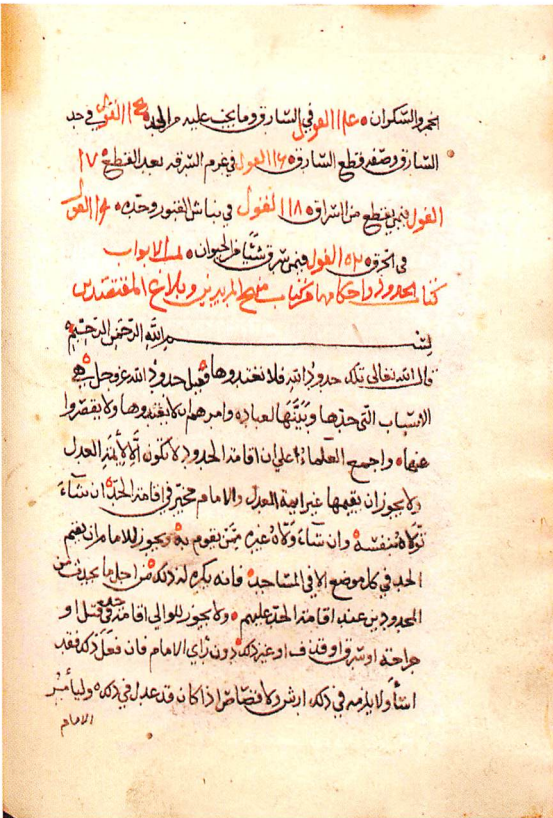 الخمر والسكران ۱٤ القول في السارق وما يجب عليه من الحد ۱٥ القول في حد
السارق وصفة قطع السارق ۱٦ القول في غرم السرقة بعد القطع ۱۷
القول فيمن يقطع من السراق ۱۸ القول في نباش القبور وحده ۱۹ القول
في الحرق ۲۰ القول فيمن سرق شيئا من الحيوان تمت الابواب
كتاب الحدود واحكامها من كتاب منهج المريدين وبلاغ المقتصدين
بسم الله الرحمن الرحيم
قال الله تعالى تلك حدود الله فلا تعتدوها وقيل حدود الله عز وجل هي
الاسباب التي حدها وبينها لعباده وامرهم ان لا يعتدوها ولا يقصروا
عنها واجمع العلماء على ان اقامة الحدود لا تكون الا لأيمة العدل
ولا يجوز ان يقيمها غير ايمة العدل والامام مخير في اقامة الحد ان شاء
تولاه بنفسه وان شاء ولاه غيره ممن يقوم به ويجوز للامام ان يقيم
الحد في كل موضع الا في المساجد فانه يكره له ذلك من اجل ما يحدث من
المحدودين عند اقامة الحد عليهم ولا يجوز للوالي اقامة حد في قتل او
جراحة او سرق او قذف او غير ذلك دون رأي الامام فان فعل ذلك فقد
اسأ ولا يلزمه في ذلك ارش ولا قصاص اذا كان قد عدل في ذلك وليأمر
الامام